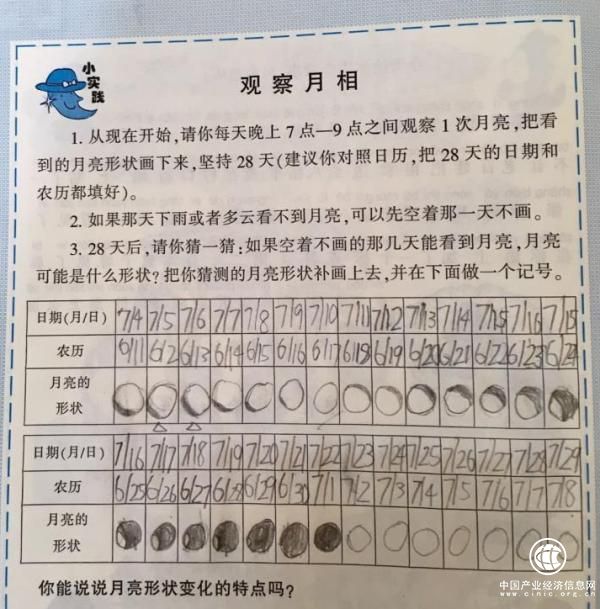 小实践
观察月相
1. 从现在开始,请你每天晚上7点—9点之间观察1次月亮,把看
到的月亮形状画下来,坚持28天(建议你对照日历,把28天的日期和
农历都填好)。
2. 如果那天下雨或者多云看不到月亮,可以先空着那一天不画。
3. 28天后,请你猜一猜:如果空着不画的那几天能看到月亮,月亮
可能是什么形状?把你猜测的月亮形状补画上去,并在下面做一个记号。
日期(月/日) 7/4 7/5 7/6 7/7 7/8 7/9 7/10 7/11 7/12 7/13 7/14 7/15 7/16 7/15
农历 6/11 6/12 6/13 6/14 6/15 6/16 6/17 6/18 6/19 6/20 6/21 6/22 6/23 6/24
月亮的
形状
日期(月/日) 7/16 7/17 7/18 7/19 7/20 7/21 7/22 7/23 7/24 7/25 7/26 7/27 7/28 7/29
农历 6/25 6/26 6/27 6/28 6/29 6/30 7/1 7/2 7/3 7/4 7/5 7/6 7/7 7/8
月亮的
形状
你能说说月亮形状变化的特点吗?
中国产业经济信息网
www.cinic.org.cn